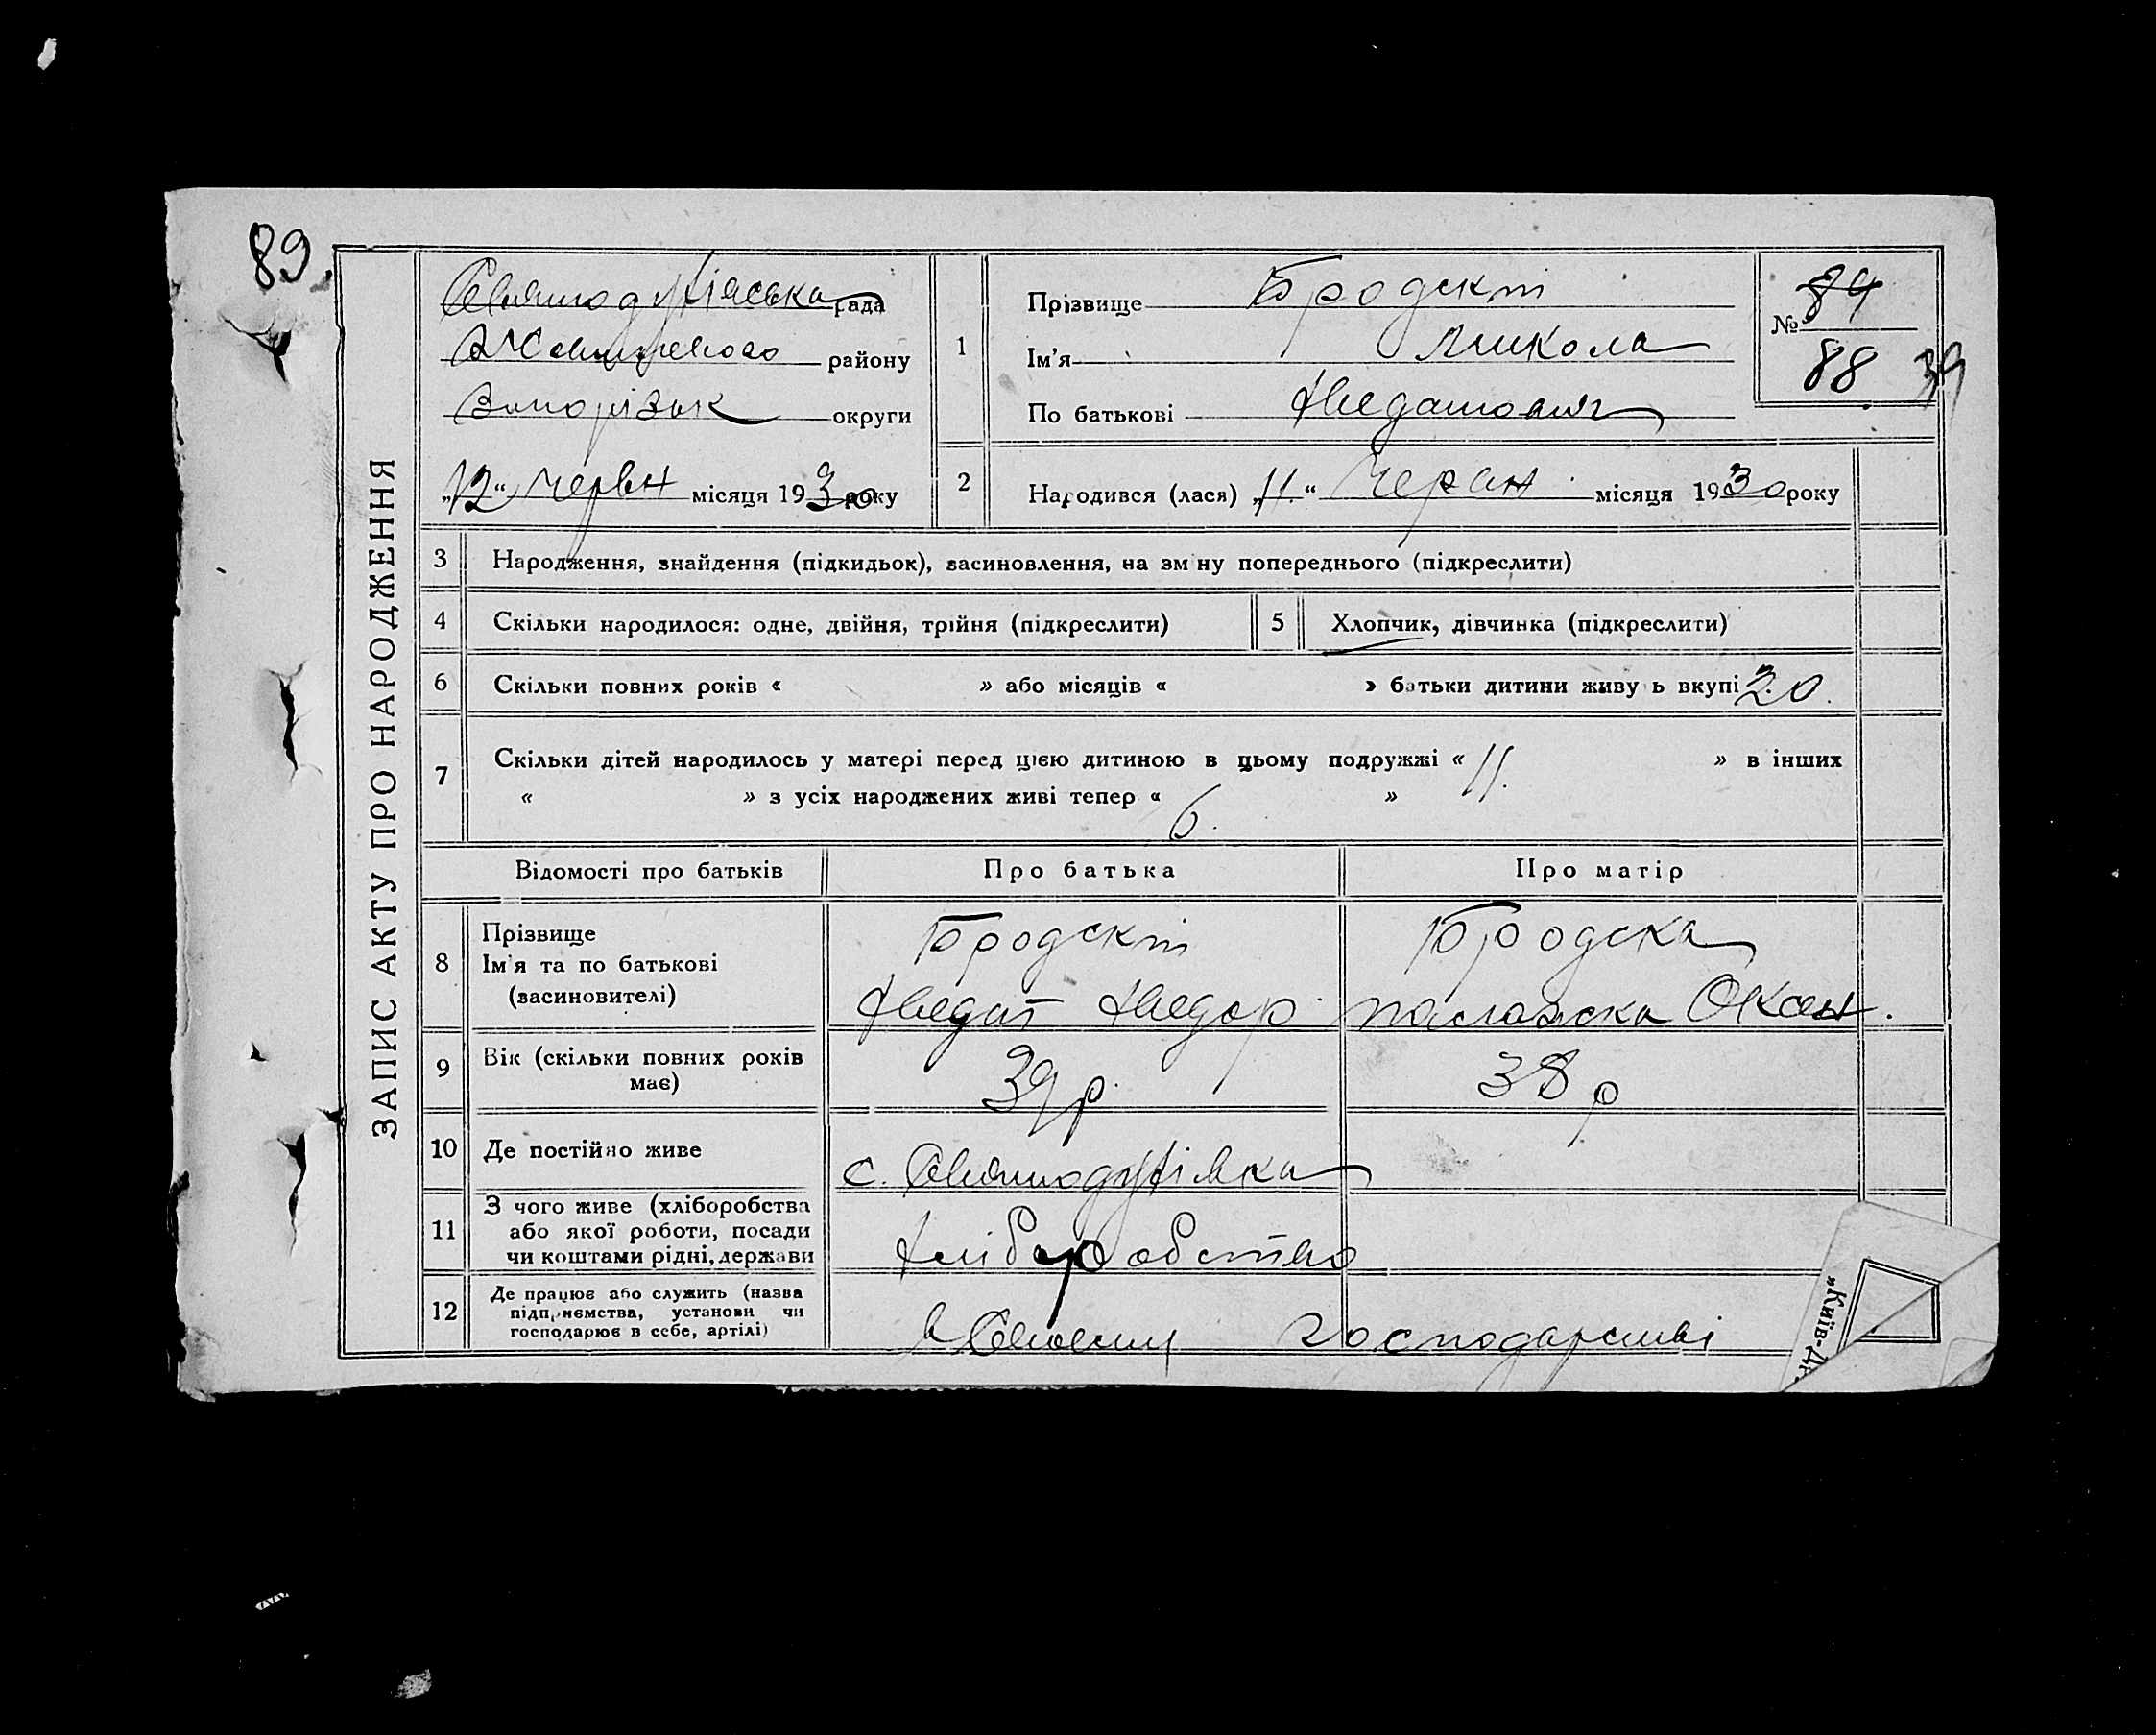 89.
ЗАПИС АКТУ ПРО НАРОДЖЕННЯ
Святодухівська рада
району
Запорізьк округи
„12“ червн місяця 1930 року
1
Прізвище Бродскі
Ім’я Микола
По батькові
№ 84
88 39
2 Народився (лася) „11.“ Червн місяця 1930 року
3 Народження, знайдення (підкидьок), засиновлення, на зміну попереднього (підкреслити)
4 Скільки народилося: одне, двійня, трійня (підкреслити) 5 Хлопчик, дівчинка (підкреслити)
6 Скільки повних років « » або місяців « » батьки дитини живуть вкупі 20.
7 Скільки дітей народилось у матері перед цією дитиною в цьому подружжі « 11. » в інших
« » з усіх народжених живі тепер « 6. »
Відомості про батьків Про батька Про матір
8 Прізвище
Ім’я та по батькові
(засиновителі)
Бродскі
Хведот Хведор
Бродска
Оксан.
9 Вік (скільки повних років
має)
39 р. 38 р
10 Де постійно живе с. Святодухівка
11 З чого живе (хліборобства
або якої роботи, посади
чи коштами рідні, держави
хліборобство
12 Де працює або служить (назва
підприємства, установи чи
господарює в себе, артілі)
в Своему господарстві
„Київ-Д